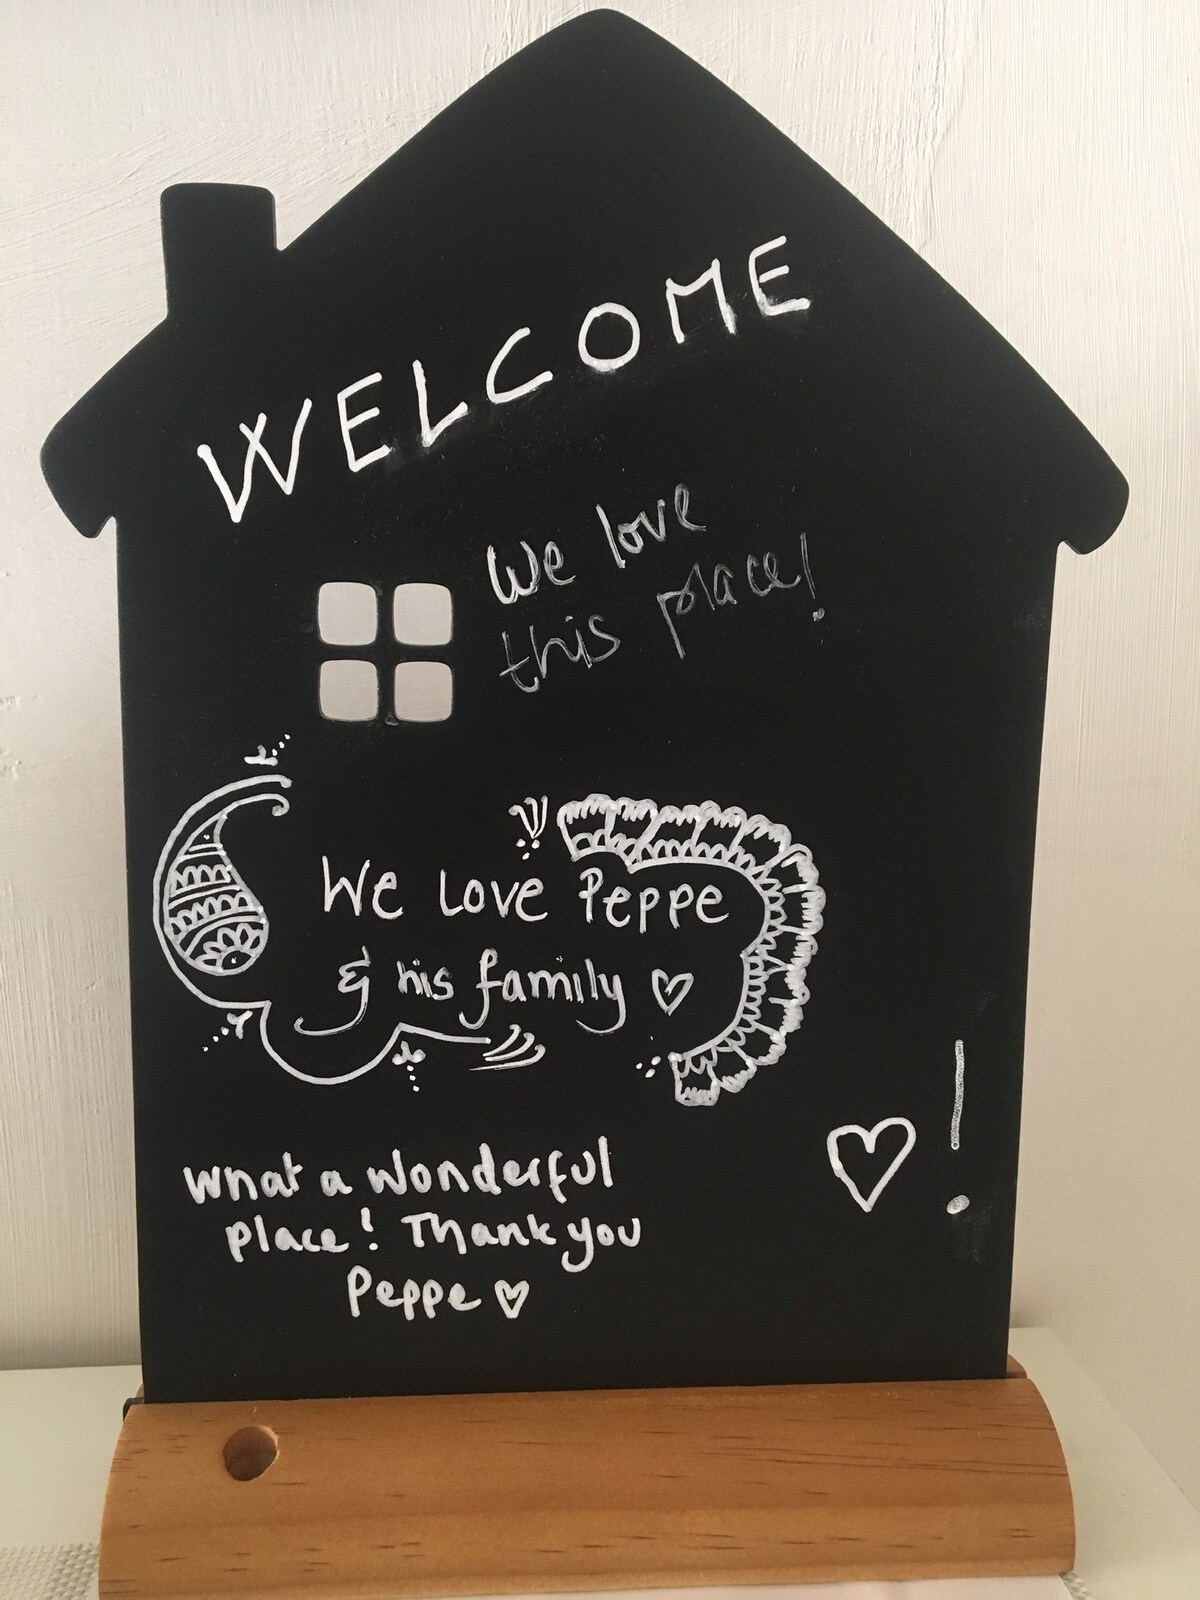 WELCOME
We love
this place!
We Love Peppe
& his family ♡
What a Wonderful
place! Thank you
Peppe ♡
♡ !